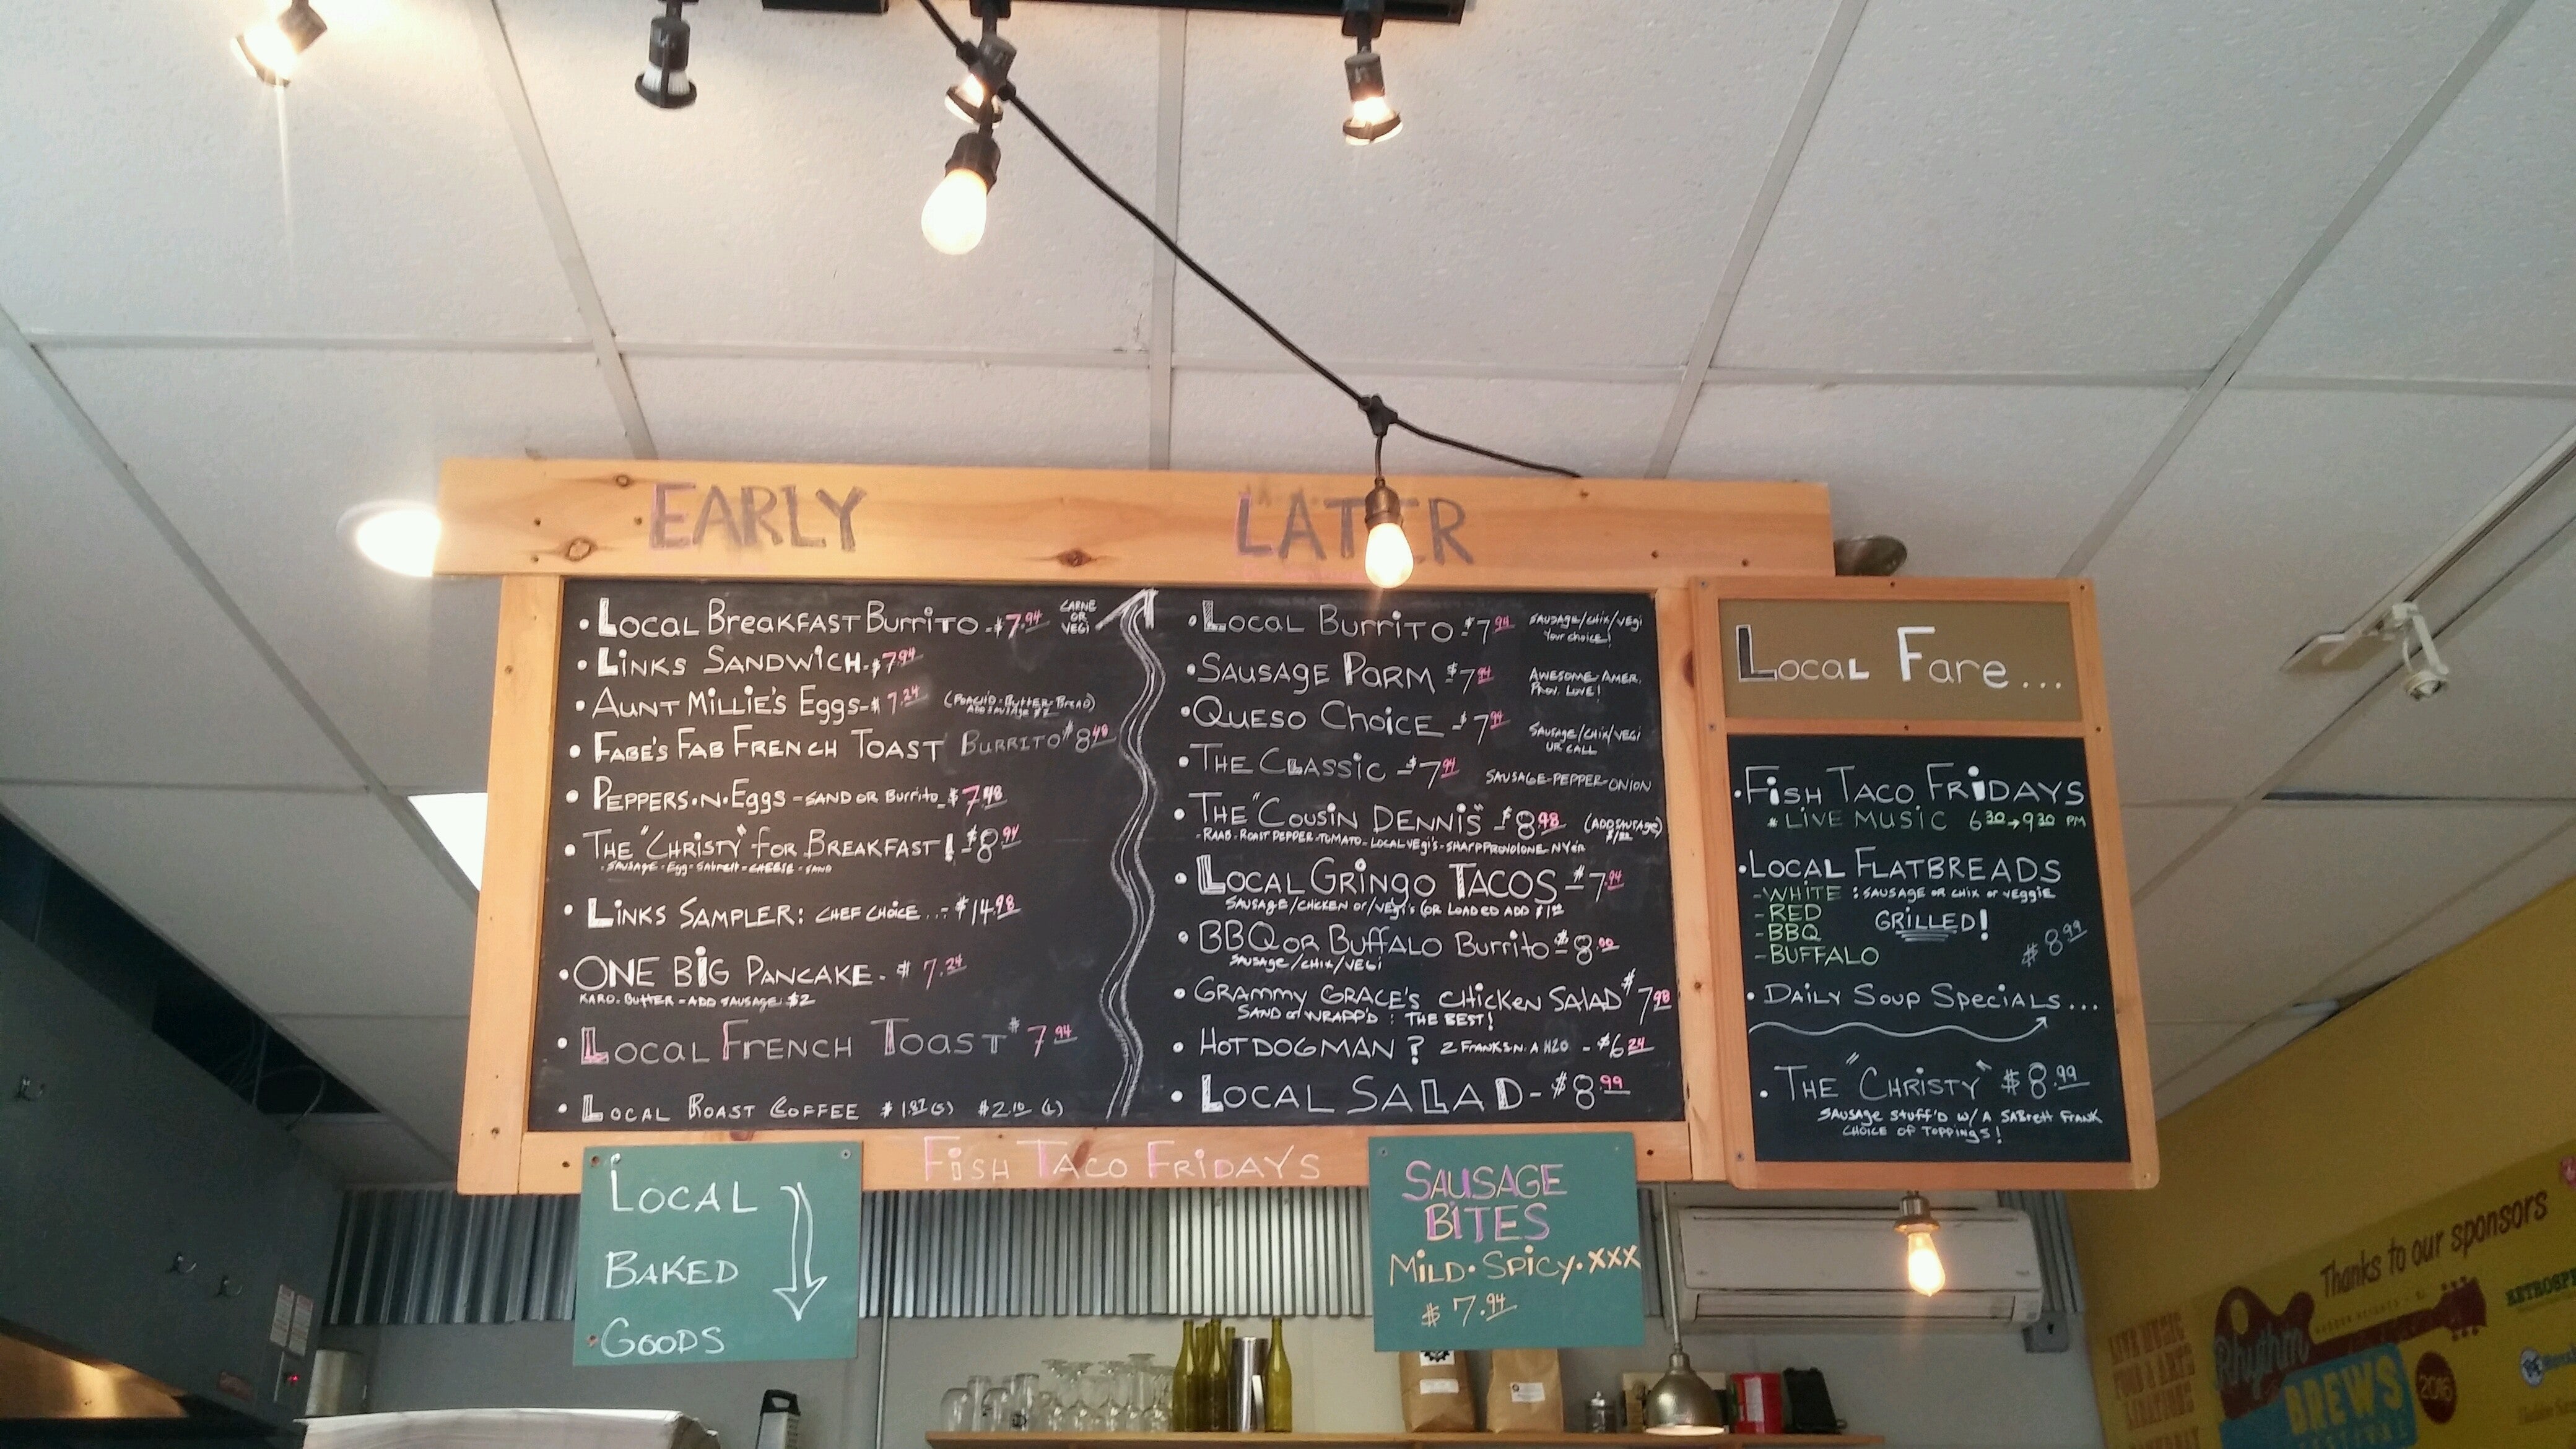 EARLY
• Local Breakfast Burrito - $7.94 CARNE OR VEGI
• Links Sandwich - $7.94
• Aunt Millie's Eggs - $7.24 (Poach'd - Butter - Bread)
Add sausage $2
• Fabe's Fab French Toast Burrito $8.48
• Peppers.N.Eggs - Sand or Burrito - $7.48
• The "Christy" for Breakfast! - $8.94
- Sausage - Egg - Sabrett - Cheese - Sand
• Links Sampler: Chef Choice... - $14.98
• One Big Pancake - $7.24
Karo - Butter - Add Sausage $2
• Local French Toast $7.94
• Local Roast Coffee $1.87 (S) $2.10 (L)
LATER
• Local Burrito - $7.94 Sausage/Chix/Vegi
Your choice!
• Sausage Parm - $7.94 Awesome-Amer.
Prov. Love!
• Queso Choice - $7.94 Sausage/Chix/Vegi
UR Call
• The Classic - $7.94 Sausage-Pepper-Onion
• The "Cousin Dennis" - $8.98 (Add Sausage)
- Raab - Roast Pepper - Tomato - Local Vegi's - Sharp Provolone - NYer
• Local Gringo Tacos - $7.94
Sausage/Chicken or/Vegi's (or Loaded add $1.00
• BBQ or Buffalo Burrito - $8.00
Sausage/Chix/Vegi
• Grammy Grace's Chicken Salad $7.98
Sand or Wrapp'd : The Best!
• Hot Dog Man? 2 Franks.N. A H2O - $6.24
• Local Salad - $8.99
Fish Taco Fridays
Local Fare...
• Fish Taco Fridays
* Live Music 6:30 → 9:30 PM
• Local Flatbreads
- White : Sausage or Chix or Veggie
- Red
Grilled!
- BBQ
- Buffalo
$8.99
• Daily Soup Specials...
• The "Christy" $8.99
Sausage Stuff'd w/ a Sabrett Frank
Choice of Toppings!
Local
Baked
Goods
Sausage
Bites
Mild • Spicy • XXX
$7.94
Thanks to our sponsors
Rhythm
BREWS
FESTIVAL
2016
LIVE MUSIC
FOOD & ARTS
LIBATIONS